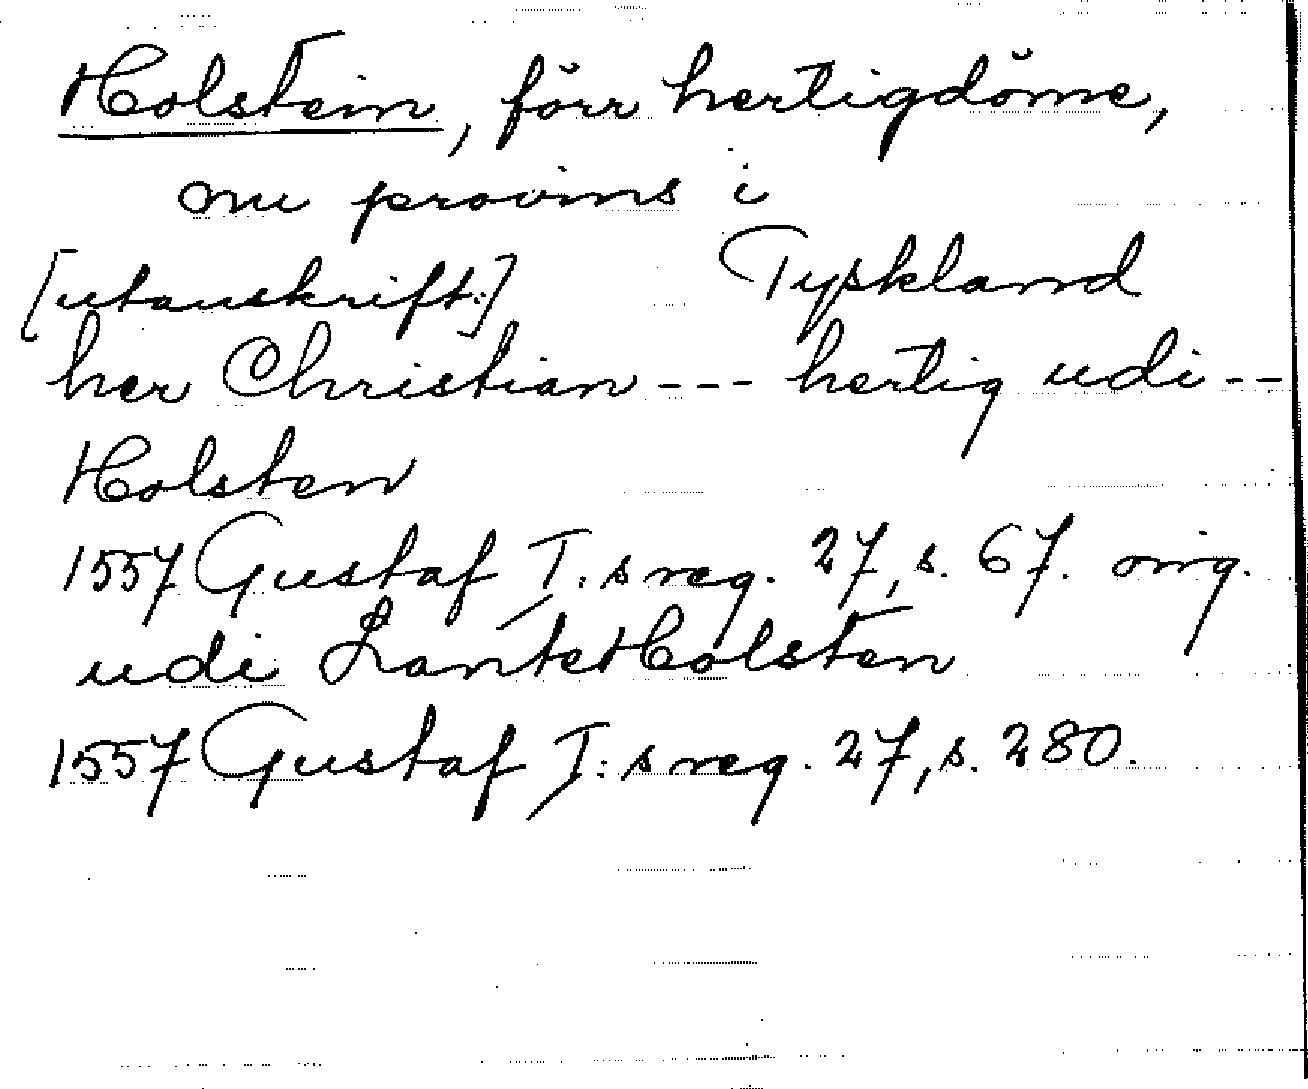 Holstein, förr hertigdöme,
nu provins i
Tyskland
[utanskrift:]
her Christian --- hertig udi --
Holsten
1557 Gustaf I:s reg. 27, s. 67. orig.
udi LantetHolsten
1557 Gustaf I:s reg. 27, s. 280.